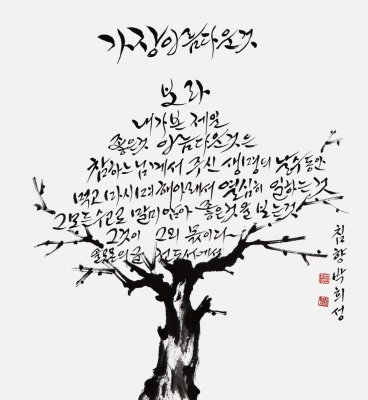 가장 아름다운것
보라
내가본 제일
좋은것 아름다운것은
참하느님께서 주신 생명의 날수동안
먹고 마시며 해아래서 열심히 일하는 것
그모든수고로 말미암아 좋은것을 보는것
그것이 그의 몫이라
솔로몬의글 전도서에서
침향 박희성